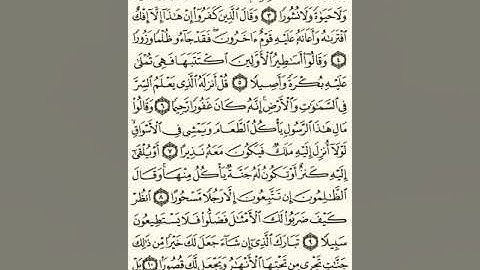 وَلَا حَيَوٰةً وَلَا نُشُورًا ٣ وَقَالَ ٱلَّذِينَ كَفَرُوٓا۟ إِنْ هَـٰذَآ إِلَّآ إِفْكٌ
ٱفْتَرَىٰهُ وَأَعَانَهُۥ عَلَيْهِ قَوْمٌ ءَاخَرُونَ ۖ فَقَدْ جَآءُو ظُلْمًا وَزُورًا
٤ وَقَالُوٓا۟ أَسَـٰطِيرُ ٱلْأَوَّلِينَ ٱكْتَتَبَهَا فَهِىَ تُمْلَىٰ
عَلَيْهِ بُكْرَةً وَأَصِيلًا ٥ قُلْ أَنزَلَهُ ٱلَّذِى يَعْلَمُ ٱلسِّرَّ
فِى ٱلسَّمَـٰوَٰتِ وَٱلْأَرْضِ ۚ إِنَّهُۥ كَانَ غَفُورًا رَّحِيمًا ٦ وَقَالُوا۟
مَالِ هَـٰذَا ٱلرَّسُولِ يَأْكُلُ ٱلطَّعَامَ وَيَمْشِى فِى ٱلْأَسْوَاقِ ۙ
لَوْلَآ أُنزِلَ إِلَيْهِ مَلَكٌ فَيَكُونَ مَعَهُۥ نَذِيرًا ٧ أَوْ يُلْقَىٰٓ
إِلَيْهِ كَنزٌ أَوْ تَكُونُ لَهُۥ جَنَّةٌ يَأْكُلُ مِنْهَا ۚ وَقَالَ
ٱلظَّـٰلِمُونَ إِن تَتَّبِعُونَ إِلَّا رَجُلًا مَّسْحُورًا ٨ ٱنظُرْ
كَيْفَ ضَرَبُوا۟ لَكَ ٱلْأَمْثَـٰلَ فَضَلُّوا۟ فَلَا يَسْتَطِيعُونَ
سَبِيلًا ٩ تَبَارَكَ ٱلَّذِىٓ إِن شَآءَ جَعَلَ لَكَ خَيْرًا مِّن ذَٰلِكَ
جَنَّـٰتٍ تَجْرِى مِن تَحْتِهَا ٱلْأَنْهَـٰرُ وَيَجْعَل لَّكَ قُصُورًۢا ١٠ بَلْ